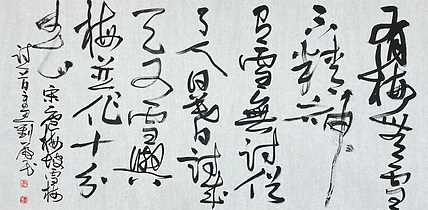 有梅無雪
不精神
有雪無詩俗
了人日暮詩成
天又雪與
梅並作十分
春 宋盧梅坡雪梅
詩一首